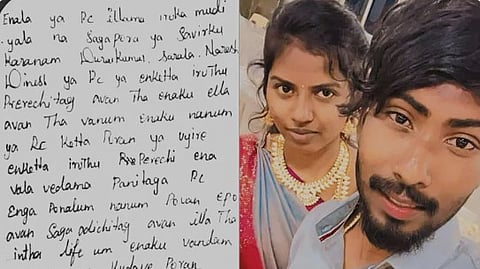 Enala ya Pc illama iruka mudi
yala na Sagapora ya Savirku
Karanam Duraikumar, Sarala, Naresh
Dinesh ya Pc ya enketta iruthu
Prerechitag avan Tha enaku ella
avan Tha vanum enaku nanum
ya Pc ketta Poran ya uyire
enketta iruthu Perechi ena
vala vedama Panitaga Pc
Enga Ponalum nanum Poran epo
avan Saga adichitag avan illa Tha
intha life um enaku vandam
Kudave Poran